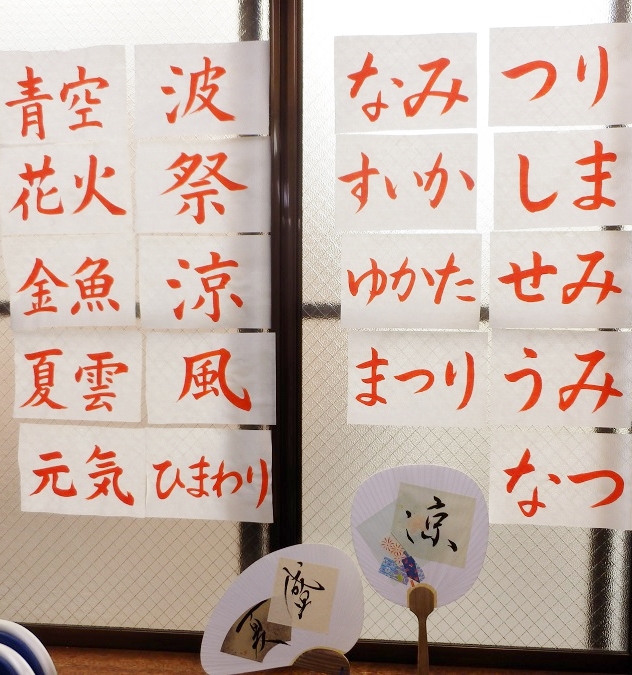 青空
花火
金魚
夏雲
元気
波
祭
涼
風
ひまわり
なみ
すいか
ゆかた
まつり
つり
しま
せみ
うみ
なつ
涼